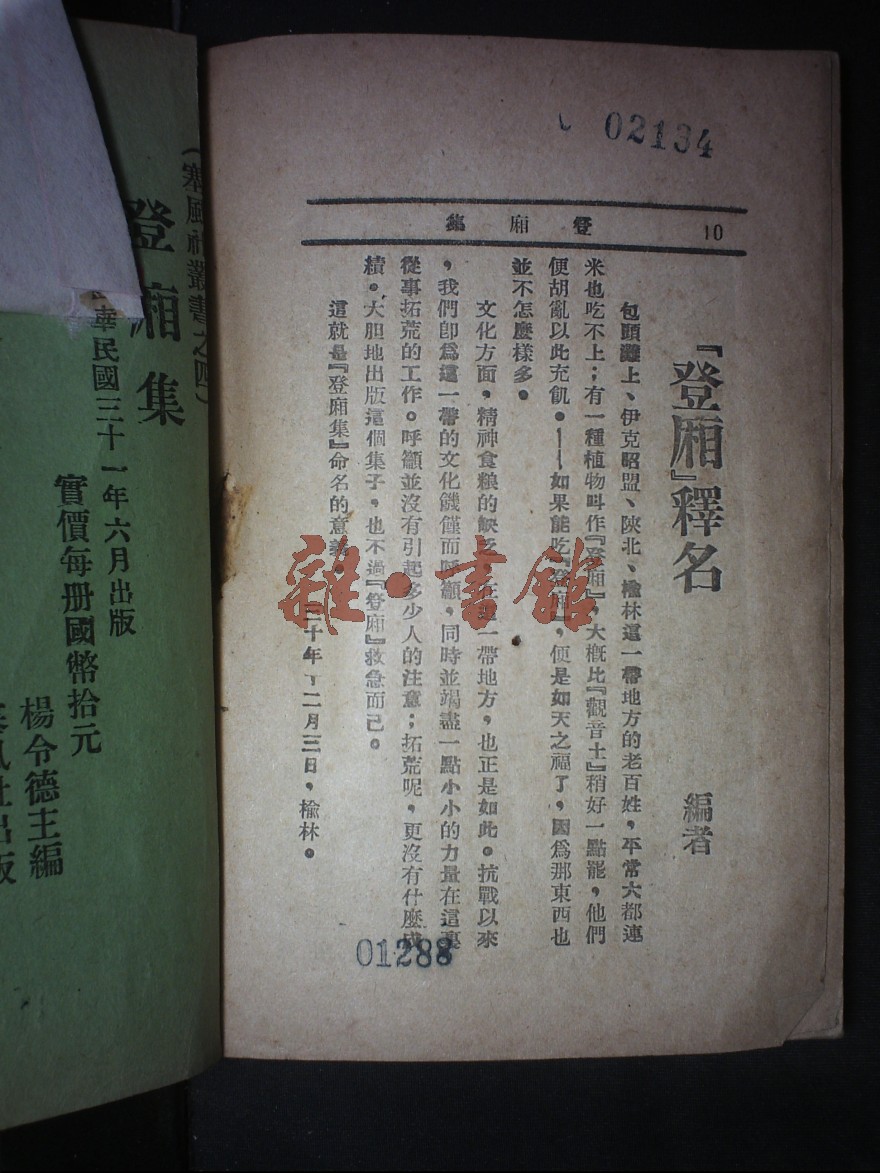 02134
10
登廂集
『登廂』釋名
編者
包頭灘上、伊克昭盟、陝北、榆林這一帶地方的老百姓，平常大都連
米也吃不上；有一種植物叫作『登廂』，大概比『觀音土』稍好一點罷，他們
便胡亂以此充飢。——如果能吃『登廂』，便是如天之福了，因爲那東西也
並不怎麼樣多。
文化方面，精神食糧的缺乏，在這一帶地方，也正是如此。抗戰以來
，我們卽爲這一帶的文化饑饉而呼籲，同時並竭盡一點小小的力量在這裏
從事拓荒的工作。呼籲並沒有引起多少人的注意；拓荒呢，更沒有什麼成
績。大胆地出版這個集子，也不過『登廂』救急而已。
這就是『登廂集』命名的意義。
三十年，二月三日，榆林。
01288
雜·書館
(塞風社叢書之四)
登廂集
華民國三十一年六月出版
實價每册國幣拾元
楊令德主編
風社出版